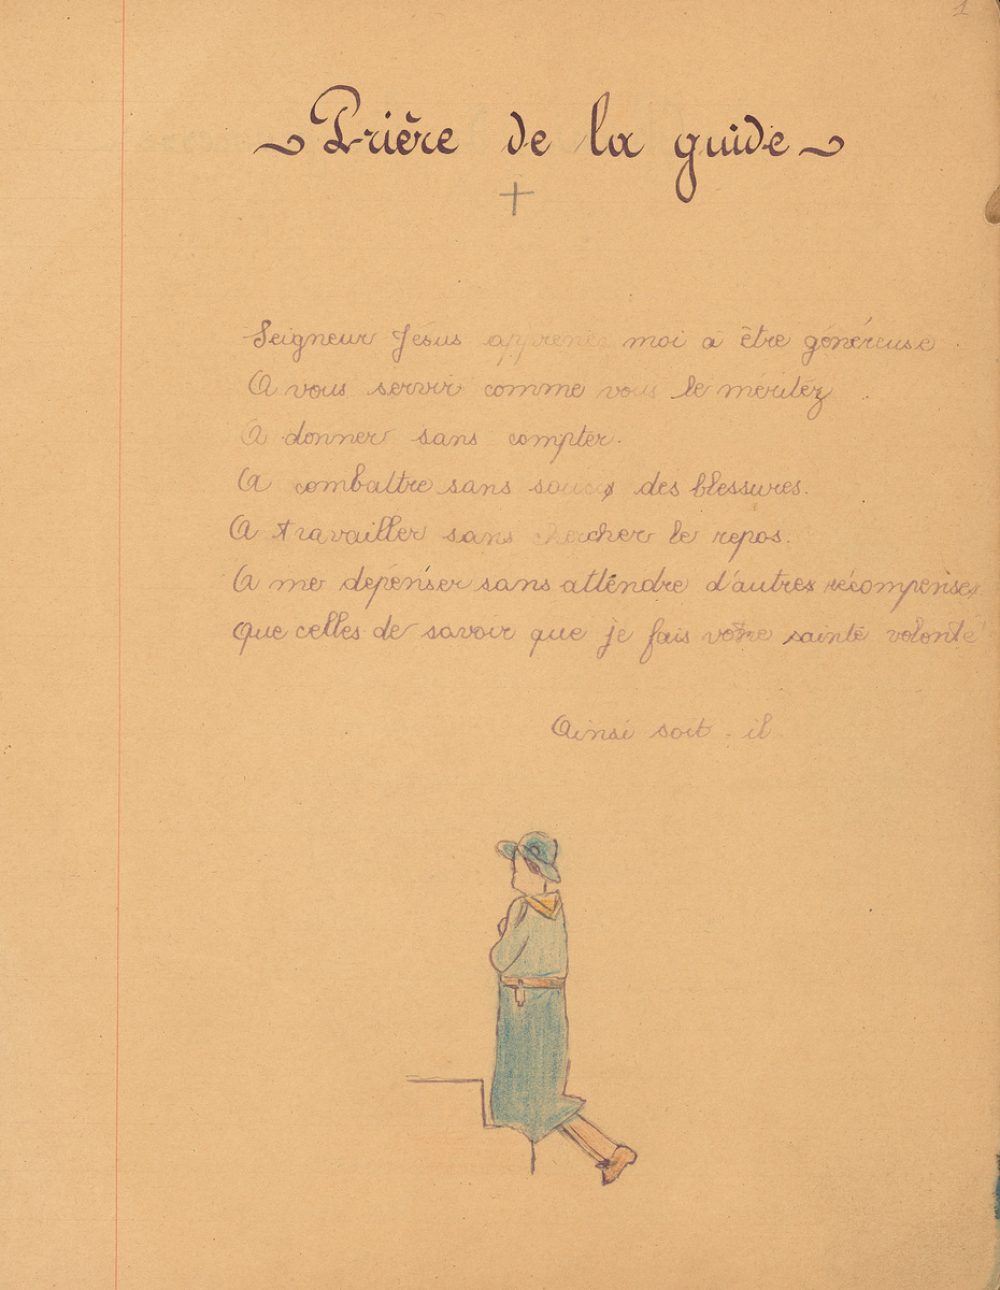 1
~Prière de la guide~
Seigneur Jésus apprenez moi a être généreuse.
A vous servir comme vous le méritéz.
A donner sans compter.
A combattre sans soucis des blessures.
A travailler sans chercher le repos.
A me dépenser sans atténdre d'autres récompenses
Que celles de savoir que je fais votre sainte volonté
Ainsi soit-il